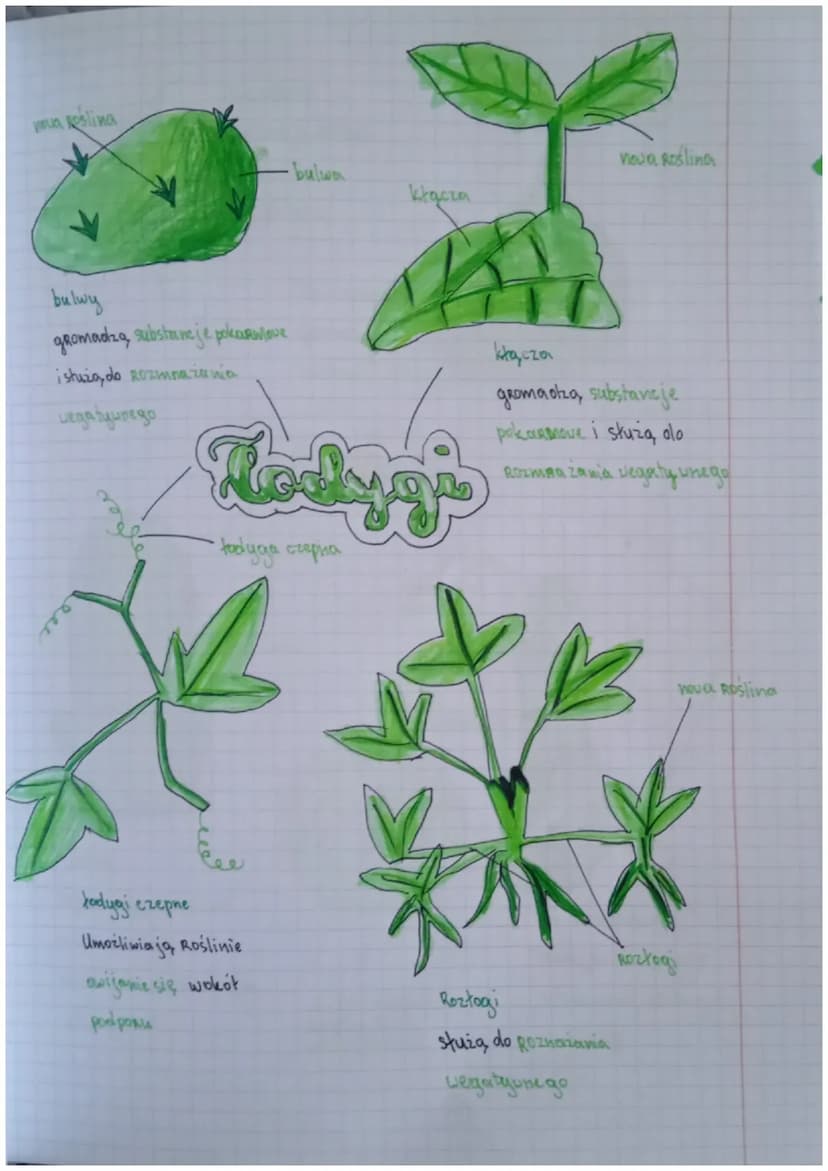 nowa Roślina
bulwa
nowa Roślina
kłącza
bulwy
gromadzą substancje pokarmowe
i służą do rozmnażania
wegatywnego
kłącza
gromadzą substancje
pokarmowe i służą do
rozmnażania wegatywnego
Łodygi
łodyga czepna
nowa Roślina
łodygi czepne
Umożliwiają Roślinie
owijanie się wokół
podporu
Rozłogi
Rozłogi
służą do Rozmażania
wegatywnego